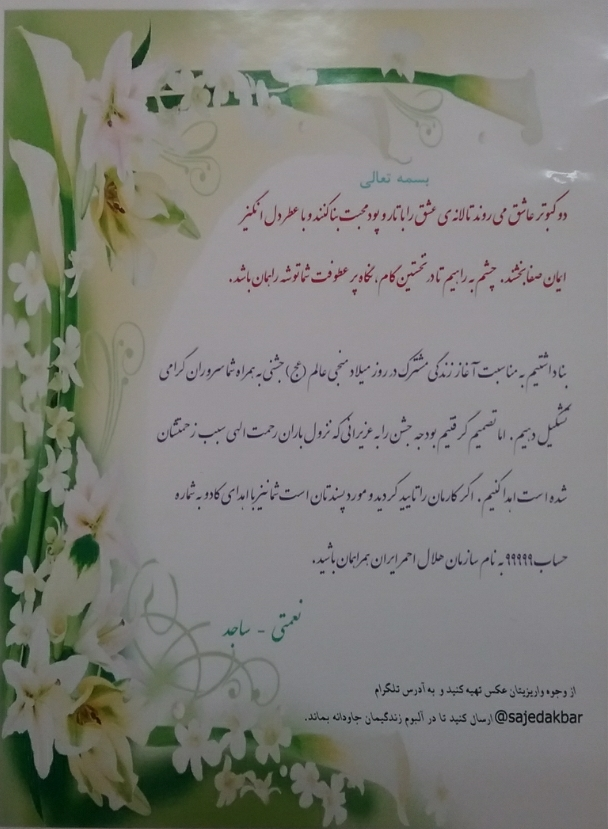 بسمه تعالی
دو کبوتر عاشق می روند تا لانه ی عشق را با تار و پود محبت بنا کنند و با عطر دل انگیز
ایمان صفا بخشند. چشم به راهیم تا در نخستین گام، نگاه پر عطوفت شما توشه راهمان باشد.
بنا داشتیم به مناسبت آغاز زندگی مشترک در روز میلاد منجی عالم (عج) جشنی به همراه شما سروران گرامی
تشکیل دهیم. اما تصمیم گرفتیم بودجه جشن را به عزیرانی که نزول باران رحمت الهی سبب زحمتشان
شده است اهدا کنیم. اگر کارمان را تایید کردید و مورد پسندتان است شما نیز با اهدای کادو به شماره
حساب ۹۹۹۹۹ به نام سازمان هلال احمر ایران همراهمان باشید.
نعمتی - ساجد
از وجوه واریزیتان عکس تهیه کنید و به آدرس تلگرام
@sajedakbar ارسال کنید تا در آلبوم زندگیمان جاودانه بماند.